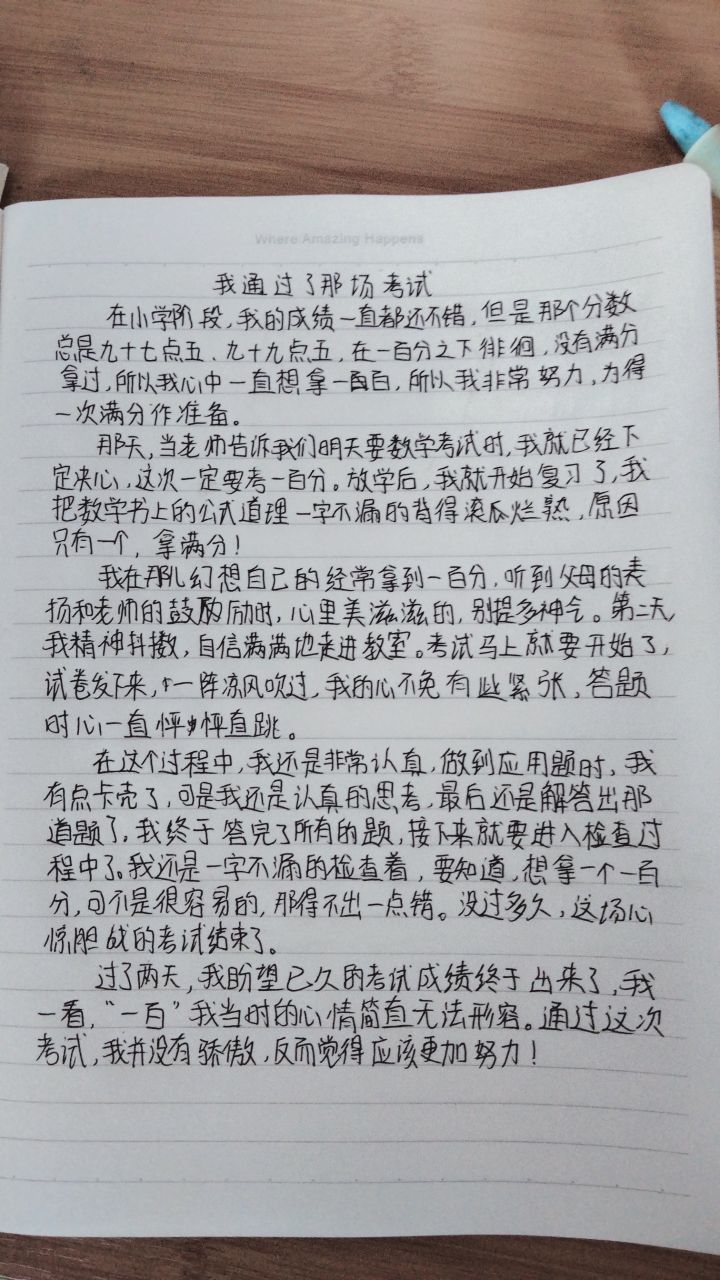 Where Amazing Happens
我通过了那场考试
在小学阶段,我的成绩一直都还不错,但是那个分数
总是九十七点五、九十九点五,在一百分之下徘徊,没有满分
拿过,所以我心中一直想拿一百,所以我非常努力,为得
一次满分作准备。
那天,当老师告诉我们明天要数学考试时,我就已经下
定决心,这次一定要考一百分。放学后,我就开始复习了,我
把数学书上的公式道理一字不漏的背得滚瓜烂熟,原因
只有一个,拿满分!
我在那儿幻想自己的经常拿到一百分,听到父母的表
扬和老师的鼓励时,心里美滋滋的,别提多神气。第二天,
我精神抖擞,自信满满地走进教室。考试马上就要开始了,
试卷发下来,一阵凉风吹过,我的心不免有些紧张,答题
时心一直怦怦直跳。
在这个过程中,我还是非常认真,做到应用题时,我
有点卡壳了,可是我还是认真的思考,最后还是解答出那
道题了,我终于答完了所有的题,接下来就要进入检查过
程中了。我还是一字不漏的检查着,要知道,想拿一个一百
分,可不是很容易的,那得不出一点错。没过多久,这场心
惊胆战的考试结束了。
过了两天,我盼望已久的考试成绩终于出来了,我
一看,“一百”我当时的心情简直无法形容。通过这次
考试,我并没有骄傲,反而觉得应该更加努力!